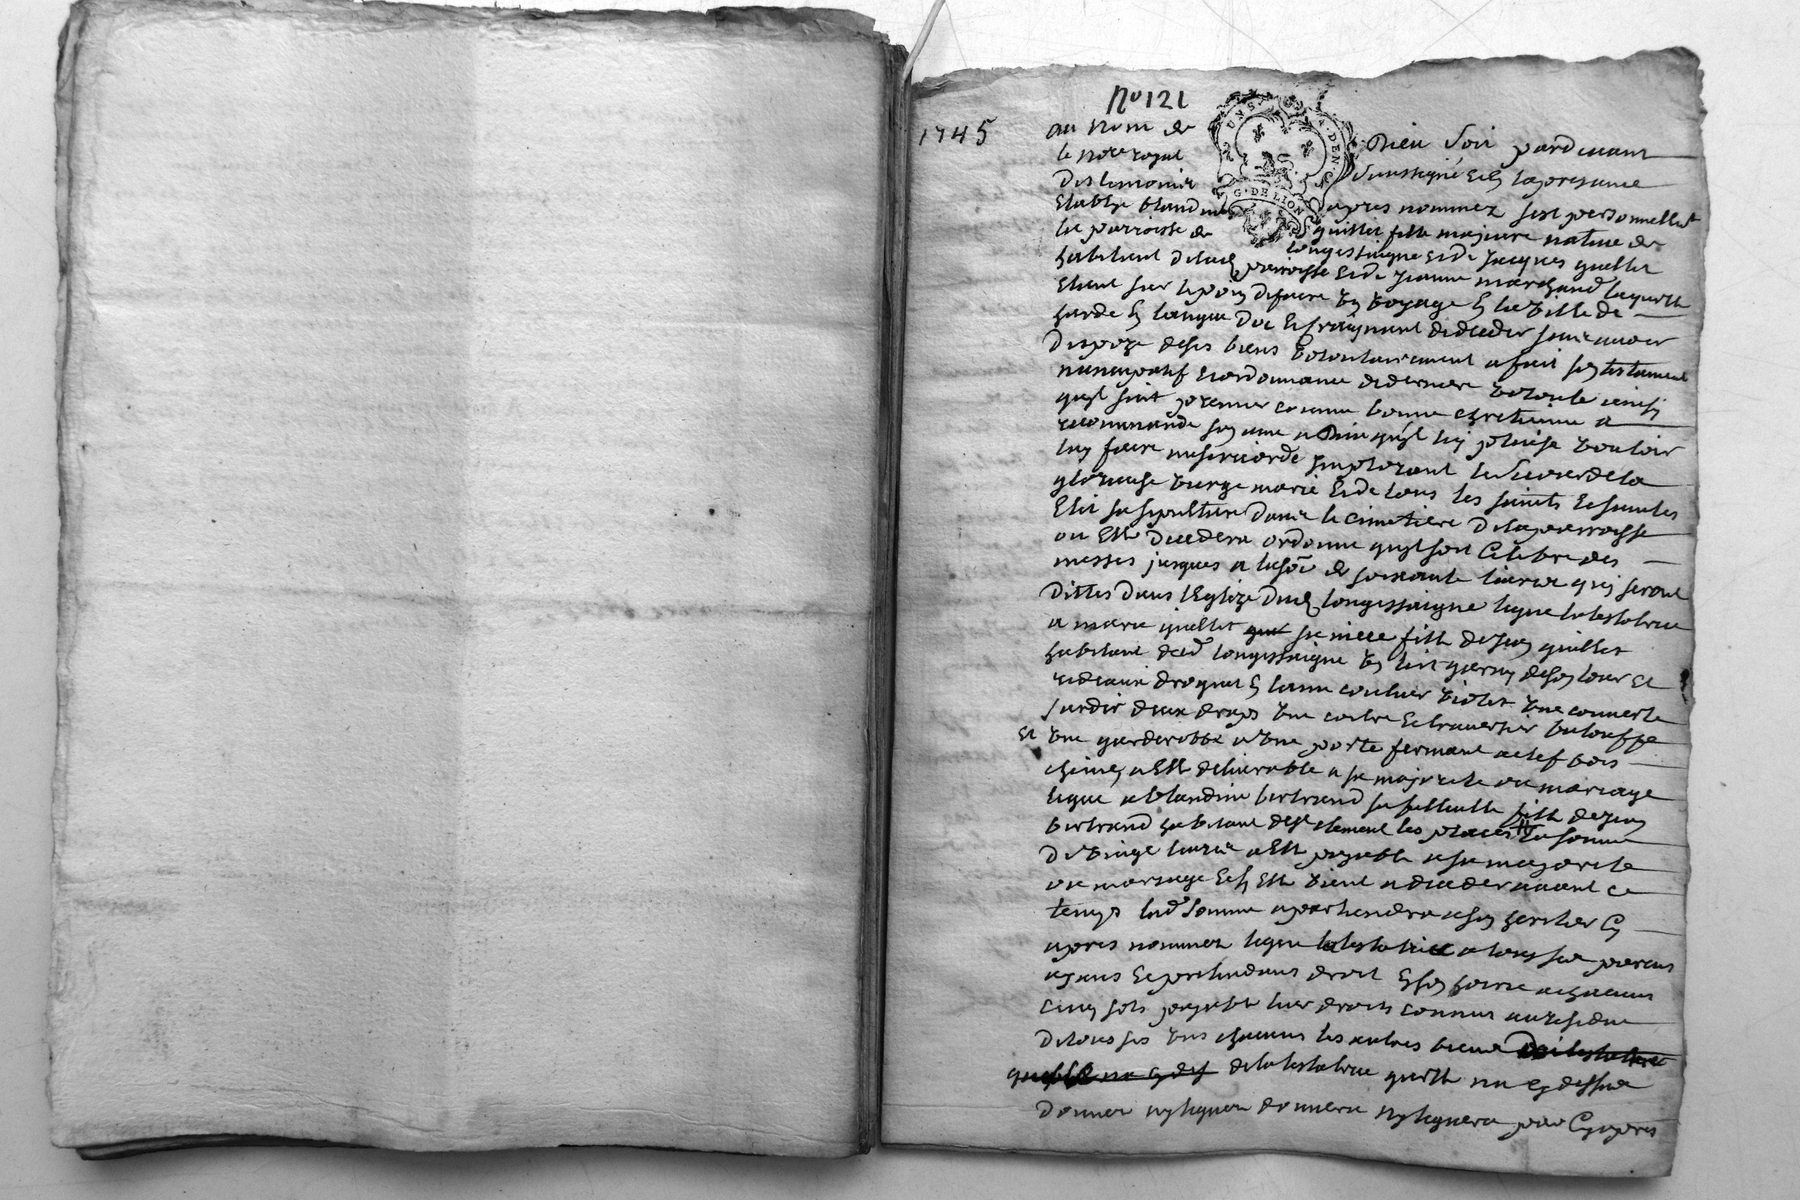 No 121
1745
au nom de Dieu soit pardevant
le nore royal soussigné & en la presance
des temoins apres nommez fust personnellemt
Establye blandine quillet fille majeure native de
la parroisse de longessaigne & de Jacques quillet
habitant de lad parroisse & de Jeanne marchand laquelle
Etant sur le poin de faire un voyage en la ville de
garde en langue doc & craignant de deceder sans avoir
dispozé de ses biens volontairement a fait son testament
nuncupatif & ordonnance de derniere volonte ainsi
quil suit premier comme bonne chretienne a
recommandé son ame a Dieu quil luy plaise vouloir
luy faire misericorde implorant le secour de la
glorieuse vierge marie & de tous les saints & saintes
Elit sa sepulture dans le cimetiere de la parroisse
ou Elle decedera ordonne quil soit celebre des
messes jusques a la som de soixante livres quy seront
dittes dans l'Eglize dud longessaigne legue la testatrice
a marie quillet sa niece fille de Jean quillet
habitant dud longessaigne un lit garny de son tour et
rideaux droguet en laine couleur violet une couverte
sardis deux draps une coitre & traversier balouffe
et une garderobbe a une porte fermant a clef bois
chene a Elle delivrable a sa majorité ou mariage
legue a blandine bertrand sa filleulle fille de Jean
bertrand habitant de st clement les places la somme
de vingt livres a Elle payable a sa majorité
ou mariage & sy Elle vient a deceder avant ce
temps lad somme apartiendra a son heritier cy
apres nommez legue la testatrice a tous ses parens
ayans & pretendans droit en son hoirie a chacun
cinq sols payable leur droits connus au residu
de tous ses uns chacuns les autres biens
de la testatrice quelle na cy dessus
donner ny leguer donnera ny leguera par cy apres